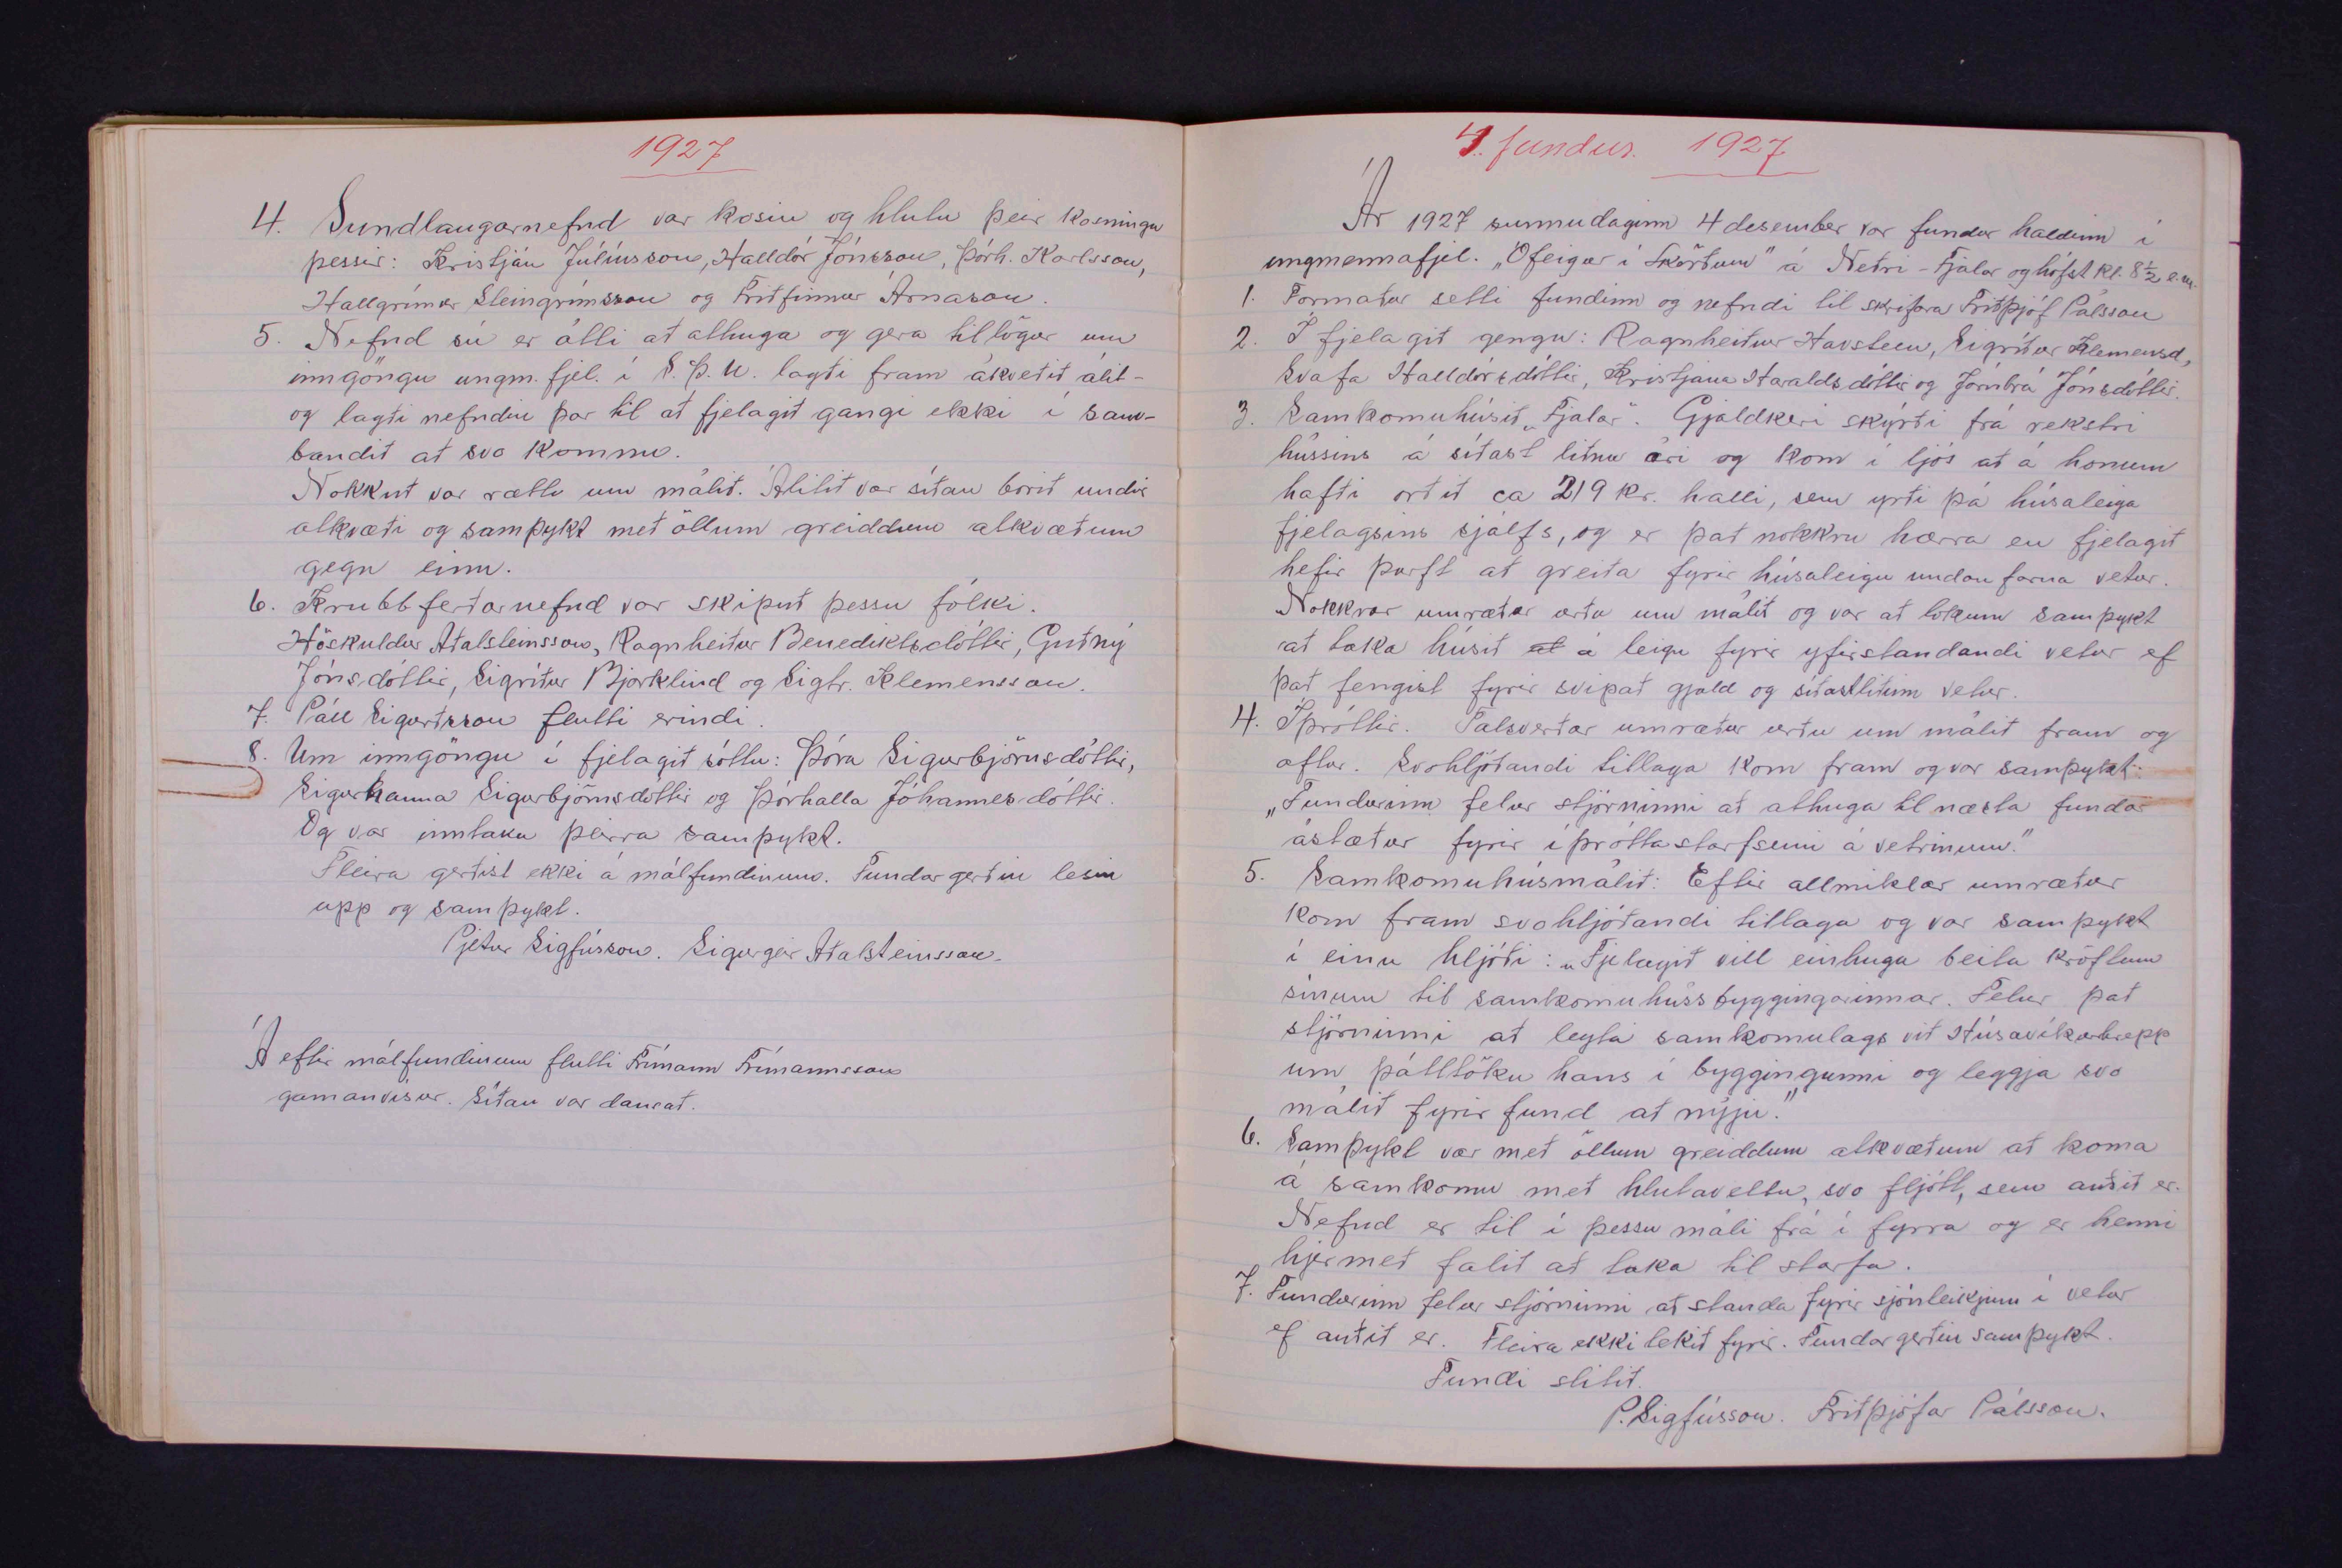 1927
4. Sundlaugarnefnd var kosin og hlutu þeir kosningu
þessir: Kristján Júlíusson, Halldór Jónsson, Þórh. Karlsson,
Hallgrímur Steingrímsson og Friðfinnur Árnason.
5. Nefnd sú er átti að athuga og gera tillögur um
inngöngu ungm. fjel. í S. Þ. U. lagði fram ákveðið álit-
og lagði nefndin þar til að fjelagið gangi ekki í sam-
bandið að svo kommu.
Nokkuð var rætt um málið. Álitið var síðan borið undir
atkvæði og samþykt með öllum greiddum atkvæðum
gegn einu.
6. Krubbferðarnefnd var skipuð þessu fólki.
Höskuldur Aðalsteinsson, Ragnheiður Benediktsdóttir, Guðný
Jónsdóttir, Sigríður Bjorklind og Sigtr. Klemensson.
7. Páll Sigurðsson flutti erindi.
8. Um inngöngu í fjelagið sóttu: Þóra Sigurbjörnsdóttir,
Sigurhanna Sigurbjörnsdóttir og Þórhalla Jóhannesdóttir.
Og var inntaka þeirra samþykt.
Fleira gerðist ekki á málfundinum. Fundargerðin lesin
upp og samþykt.
Pjetur Sigfússon. Sigurgeir Aðalsteinsson.
Á eftir málfundinum flutti Frímann Frímannsson
gamanvísur. Síðan var dansað.
4. fundur. 1927
Ár 1927 sunnudaginn 4 desember var fundur haldinn í
ungmennafjel. „Ófeigur í Skörðum" á Neðri-Fjalar og hófst kl. 8½ e.m.
1. Formaður setti fundinn og nefndi til skrifara Friðþjóf Pálsson
2. Í fjelagið gengu: Ragnheiður Havsteen, Sigríður Klemensd,
Svafa Halldórsdóttir, Kristjana Haraldsdóttir og Járnbrá Jónsdóttir.
3. Samkomuhúsið „Fjalar". Gjaldkeri skýrði frá rekstri
hússins á síðast liðnu ári og kom í ljós að á honum
hafði orðið ca 219 kr. halli, sem yrði þá húsaleiga
fjelagsins sjálfs, og er það nokkru hærra en fjelagið
hefir þurft að greiða fyrir húsaleigu undanfarna vetur.
Nokkrar umræður urðu um málið og var að lokum samþykt
að taka húsið at á leigu fyrir yfirstandandi vetur ef
það fengist fyrir svipað gjald og síðastliðinn vetur.
4. Íþróttir. Talsverðar umræður urðu um málið fram og
aftur. Svohljóðandi tillaga kom fram og var samþykt:
„Fundurinn felur stjórninni að athuga til næsta fundar
ástæður fyrir íþróttastarfsemi á vetrinum."
5. Samkomuhúsmálið: Eftir allmiklar umræður
kom fram svohljóðandi tillaga og var samþykt
í einu hljóði: „Fjelagið vill einhuga beita kröftum
sínum til samkomuhússbyggingarinnar. Felur það
stjórninni að leyta samkomulags við Húsavíkurhrepp
um þátttöku hans í byggingunni og leggja svo
málið fyrir fund að nýju."
6. Samþykt var með öllum greiddum atkvæðum að koma
á samkomu með hlutaveltu, svo fljótt, sem auðið er.
Nefnd er til í þessu máli frá í fyrra og er henni
hjermeð falið að taka til starfa.
7. Fundurinn felur stjórninni að standa fyrir sjónleikjum í vetur
ef auðið er. Fleira ekki tekið fyrir. Fundargerðin samþykt.
Fundi slitið.
P. Sigfússon. Friðþjófur Pálsson.